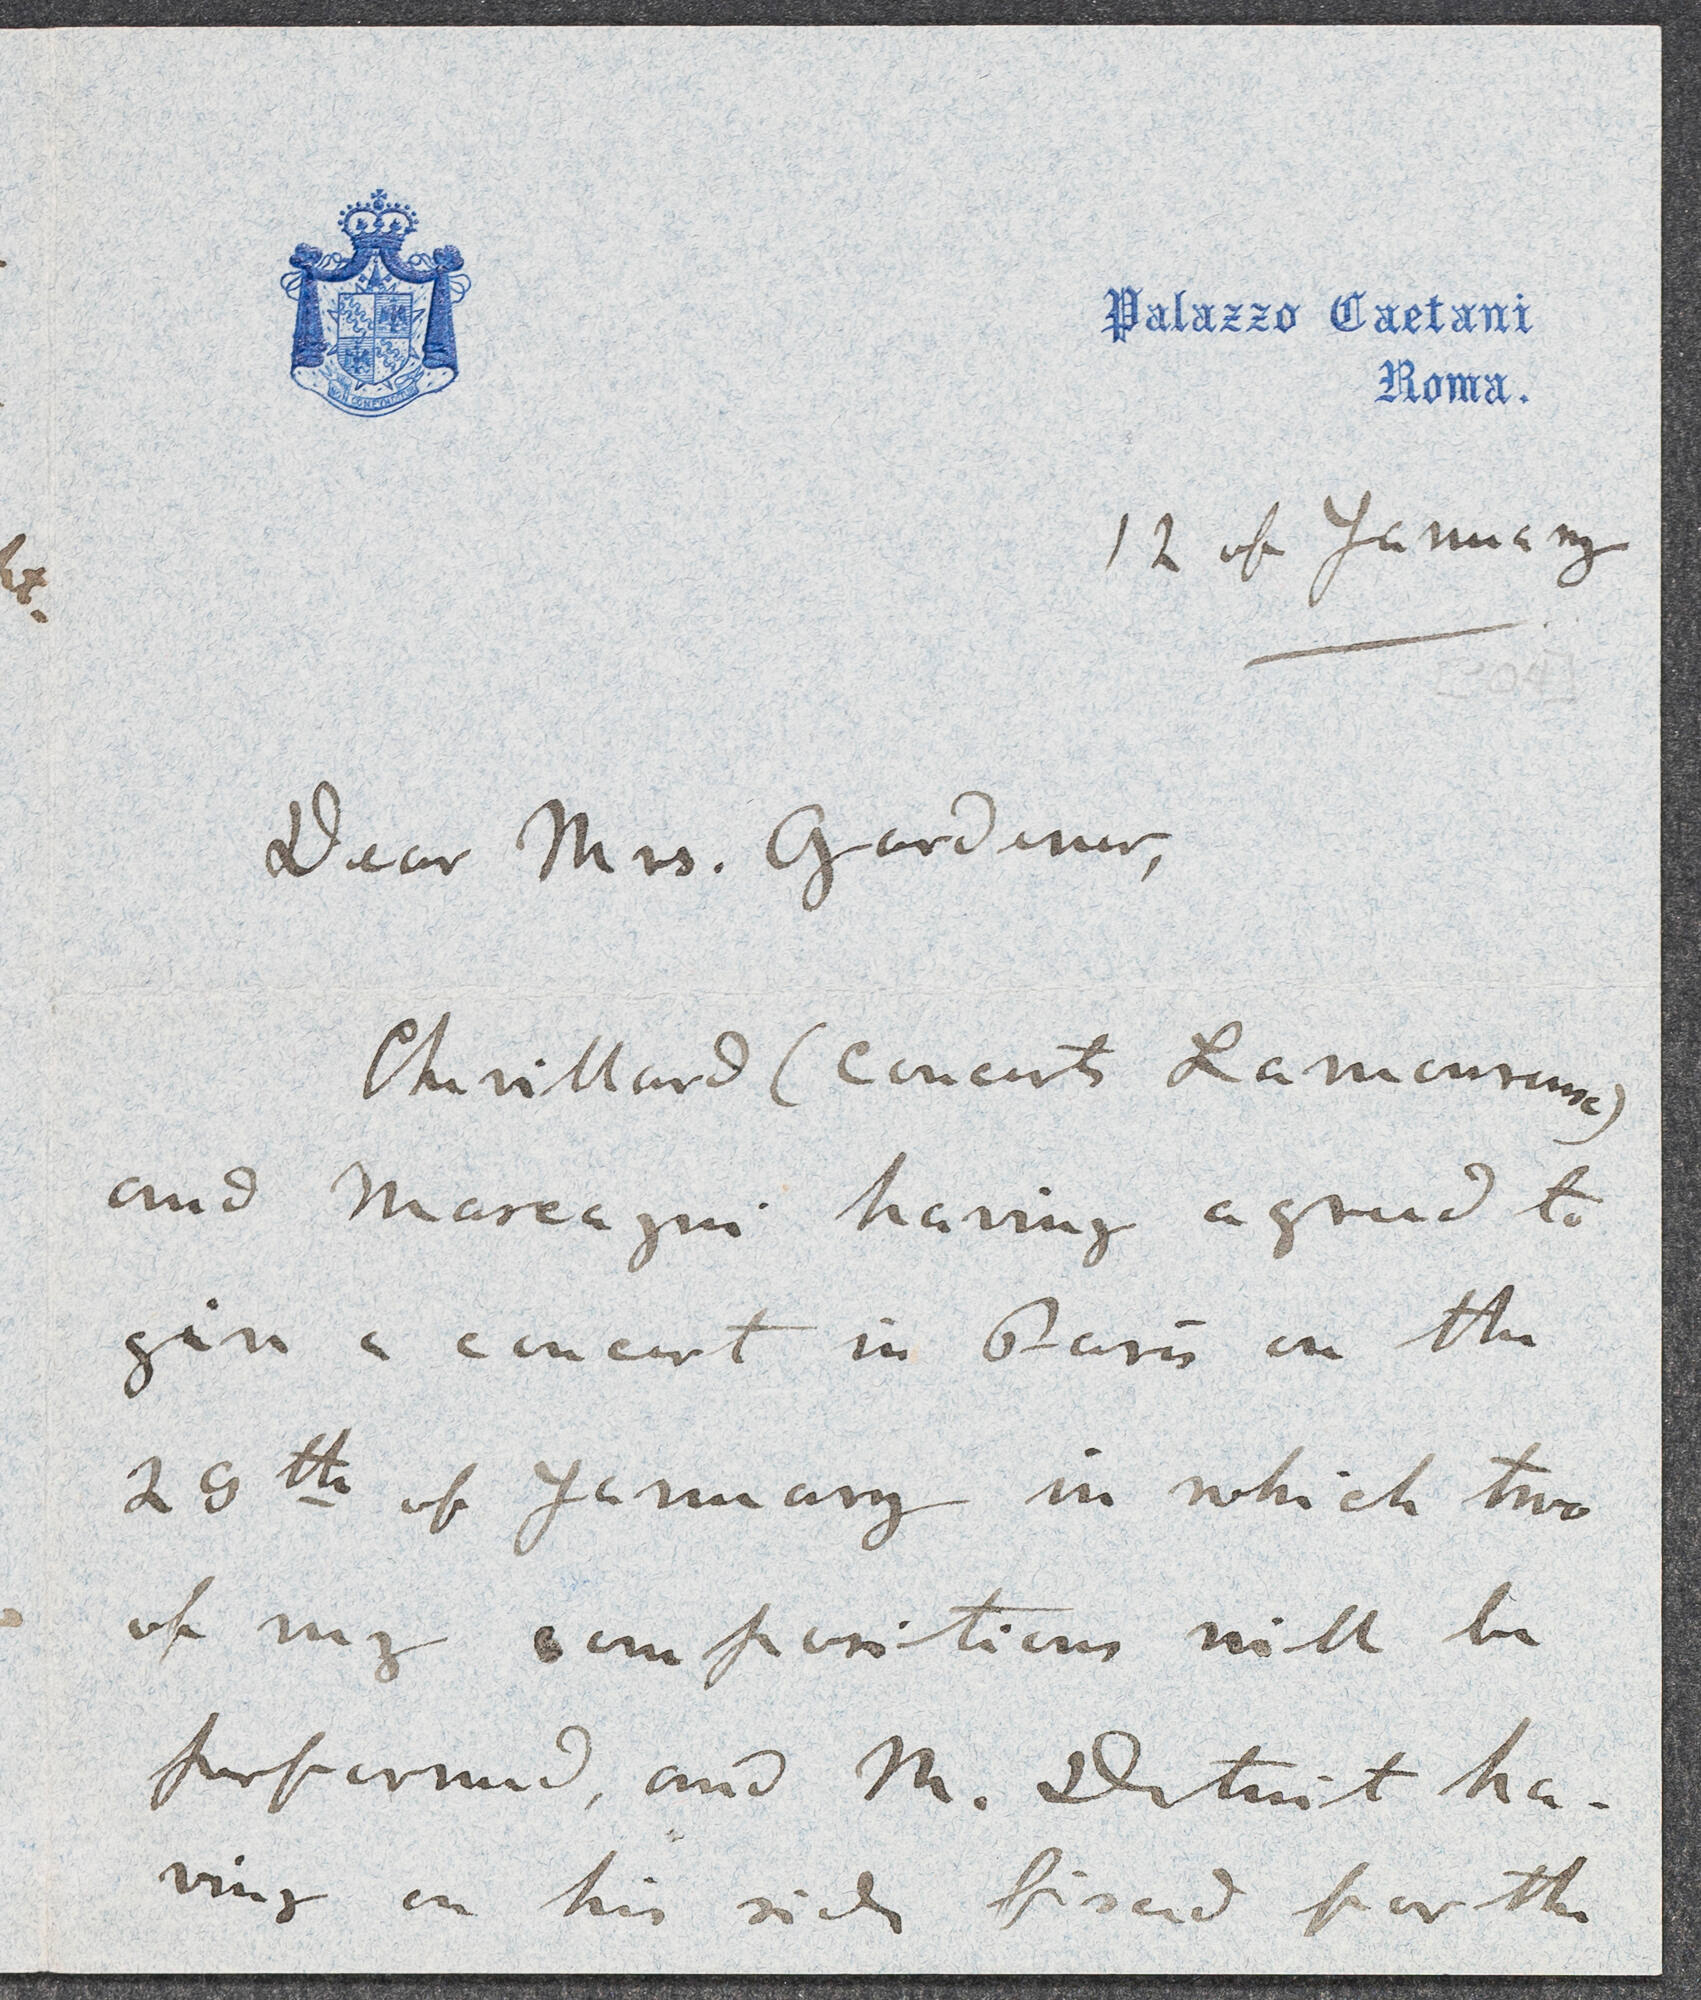 Palazzo Caetani
Roma.
12 of January
Dear Mrs. Gardener,
Chevillard (Concerts Lamoureux)
and Mascagni having agreed to
give a concert in Paris on the
29th of January in which two
of my compositions will be
performed, and M. Detroit ha-
ving on his side fixed for the